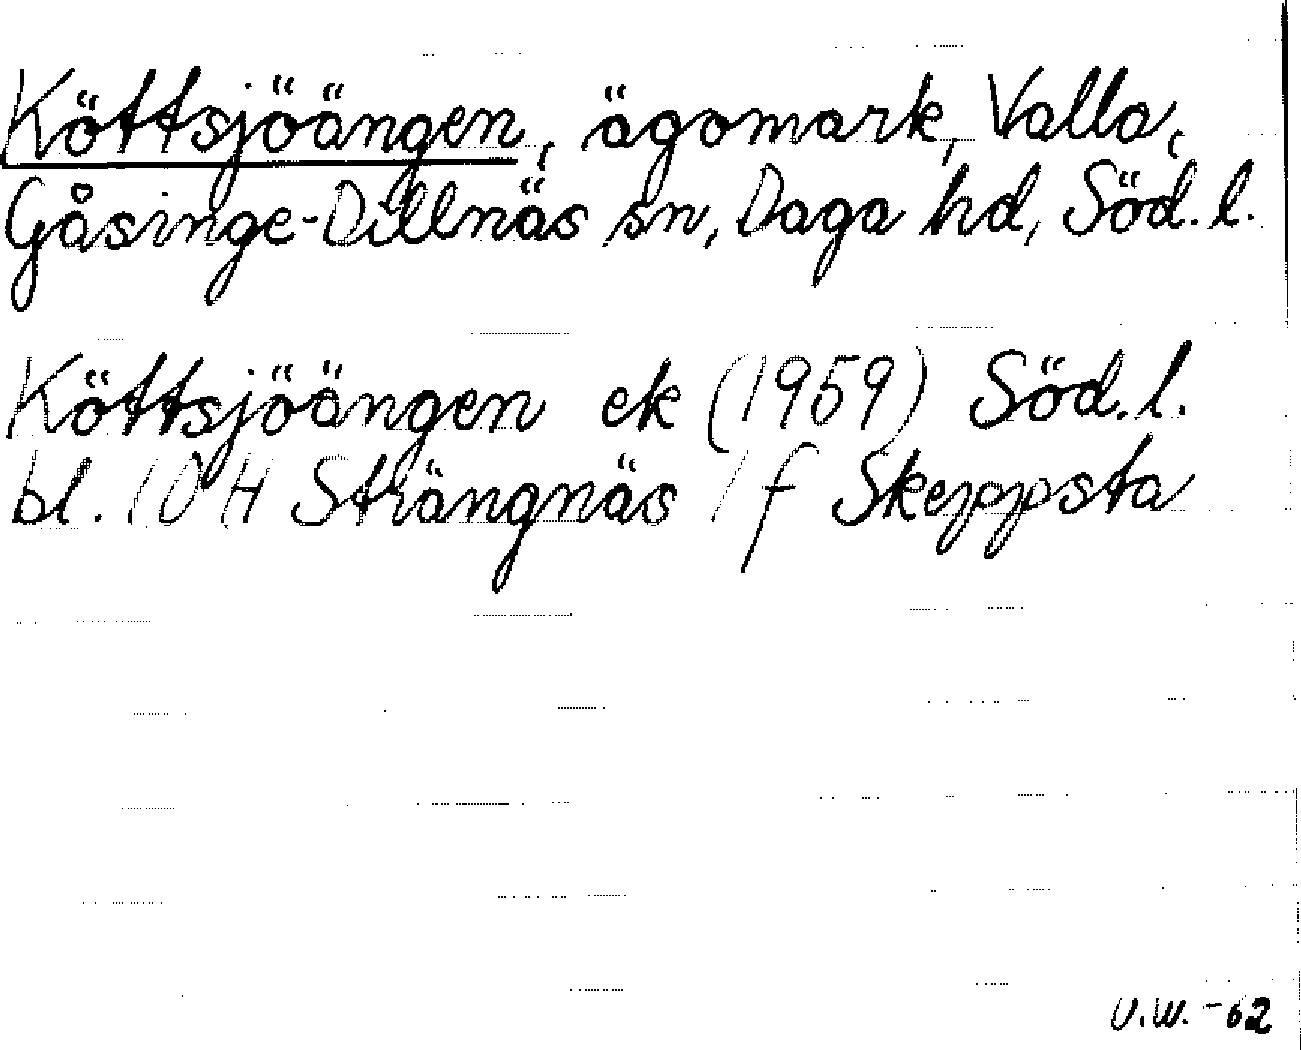 Köttsjöängen, ägomark, Valla,
Gåsinge-Dillnäs sn, Daga hd, Söd. l.
Köttsjöängen ek (1959) Söd. l.
bl. 10 H Strängnäs 1 f Skeppsta
U.W. -62